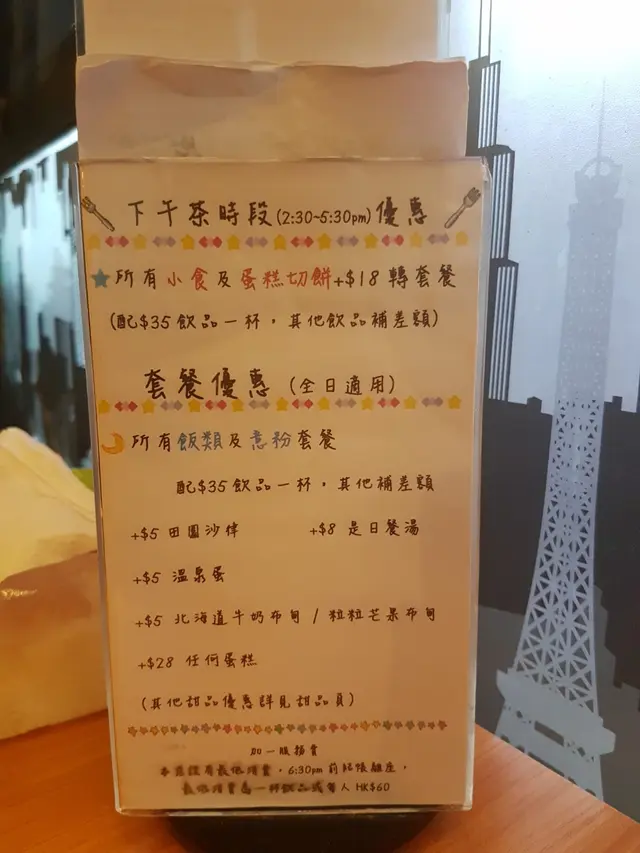 下午茶時段(2:30~5:30pm)優惠
所有小食及蛋糕切餅+$18轉套餐
(配$35飲品一杯，其他飲品補差額)
套餐優惠 (全日適用)
所有飯類及意粉套餐
配$35飲品一杯，其他補差額
+$5 田園沙律 +$8 是日餐湯
+$5 溫泉蛋
+$5 北海道牛奶布甸 / 粒粒芒果布甸
+$28 任何蛋糕
(其他甜品優惠詳見甜品頁)
加一服務費
本店設有最低消費，6:30pm 前結帳離座，
最低消費為一杯飲品或每人 HK$60